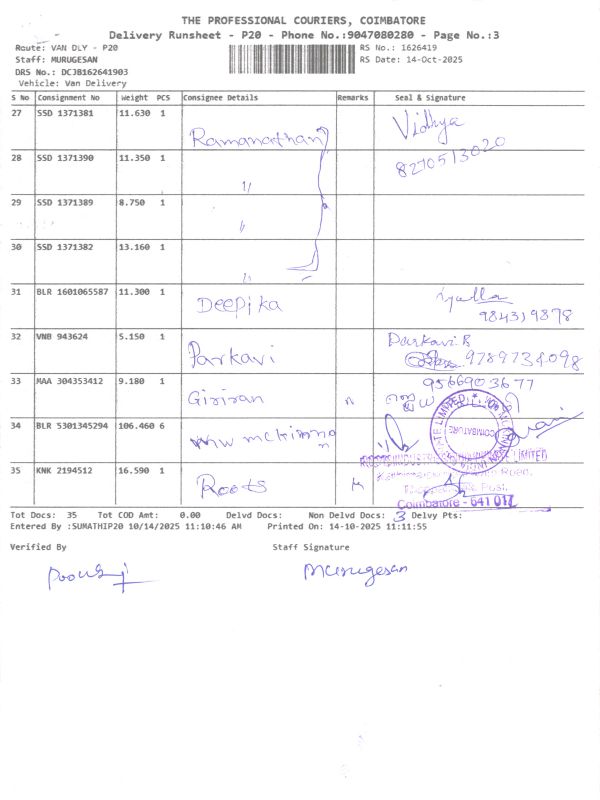 THE PROFESSIONAL COURIERS, COIMBATORE
Delivery Runsheet - P20 - Phone No.:9047080280 - Page No.:3
Route: VAN DLY - P20 RS No.: 1626419
Staff: MURUGESAN RS Date: 14-Oct-2025
DRS No.: DCJB162641903
Vehicle: Van Delivery
S No Consignment No Weight PCS Consignee Details Remarks Seal & Signature
27 SSD 1371381 11.630 1 Ramanathan Vidhya
8270513020
28 SSD 1371390 11.350 1 "
29 SSD 1371389 8.750 1 "
30 SSD 1371382 13.160 1
31 BLR 1601065587 11.300 1 Deepika
984319878
32 VNB 943624 5.150 1 Parkavi Parkavi R
9789734098
33 MAA 304353412 9.180 1 Giriran 9566903677
34 BLR 5301345294 106.460 6 mw mckinnon
LIMITED
35 KNK 2194512 16.590 1 Roots
Road,
Post,
Coimbatore - 641 017
Tot Docs: 35 Tot COD Amt: 0.00 Delvd Docs: Non Delvd Docs: 3 Delvy Pts:
Entered By :SUMATHIP20 10/14/2025 11:10:46 AM Printed On: 14-10-2025 11:11:55
Verified By Staff Signature
Murugesan